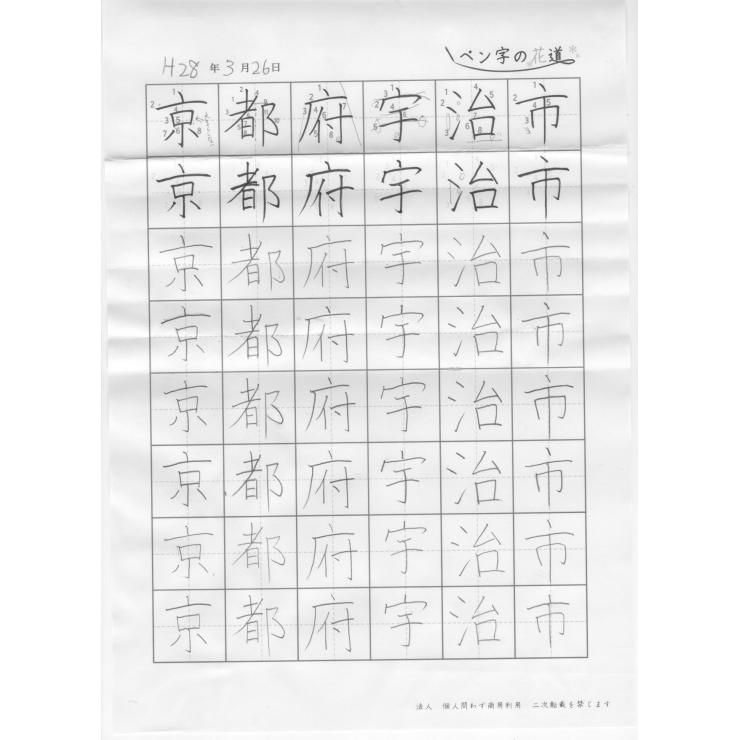 H28年3月26日
ペン字の花道
京都府宇治市
京都府宇治市
京都府宇治市
京都府宇治市
京都府宇治市
京都府宇治市
京都府宇治市
京都府宇治市
法人 個人問わず商用利用 二次転載を禁じます